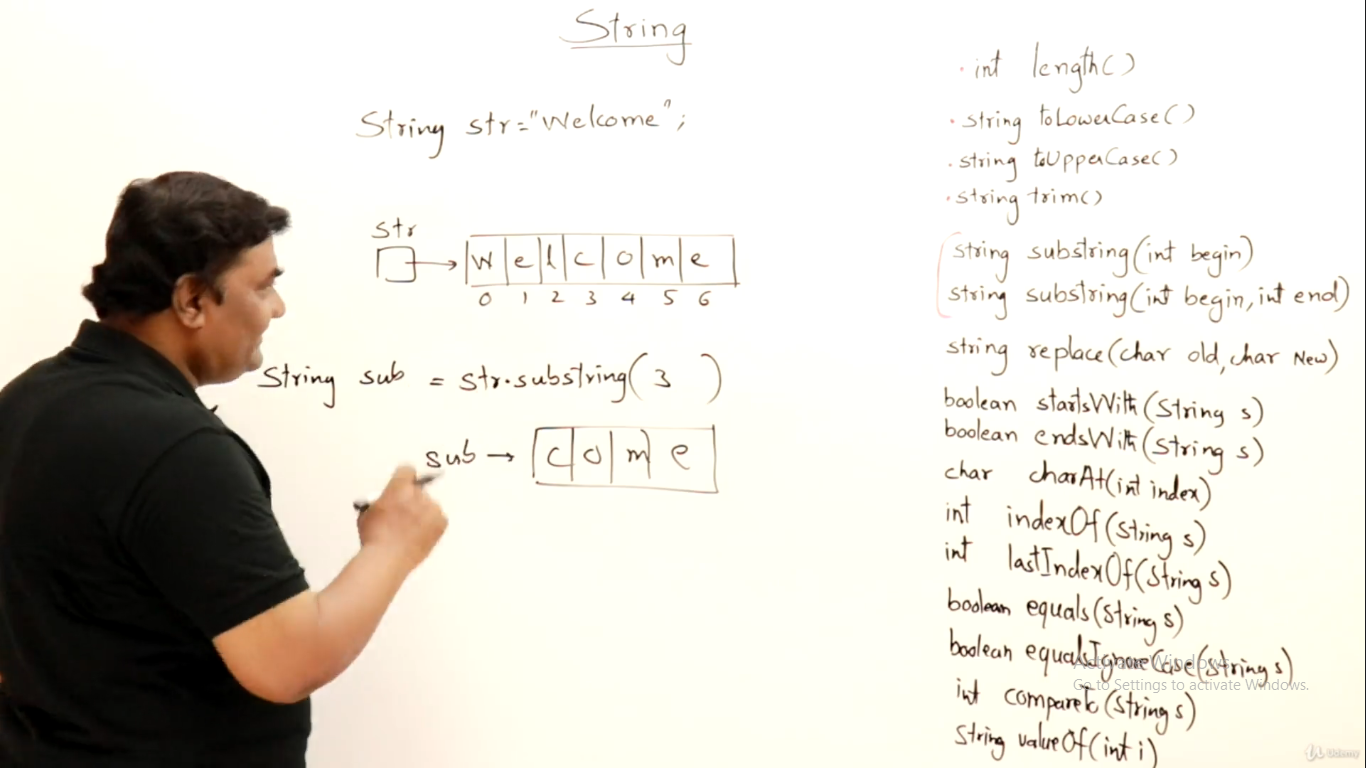 String
String str="Welcome";
str
W e l c o m e
0 1 2 3 4 5 6
String sub = str.substring( 3 )
sub → c o m e
int length()
string toLowerCase()
string toUpperCase()
string trim()
string substring(int begin)
string substring(int begin, int end)
string replace(char old, char New)
boolean startsWith(String s)
boolean endsWith(String s)
char charAt(int index)
int indexOf(String s)
int lastIndexOf(String s)
boolean equals(String s)
boolean equalsIgnoreCase(String s)
int compareTo(String s)
String valueOf(int i)
Activate Windows
Go to Settings to activate Windows.
Udemy